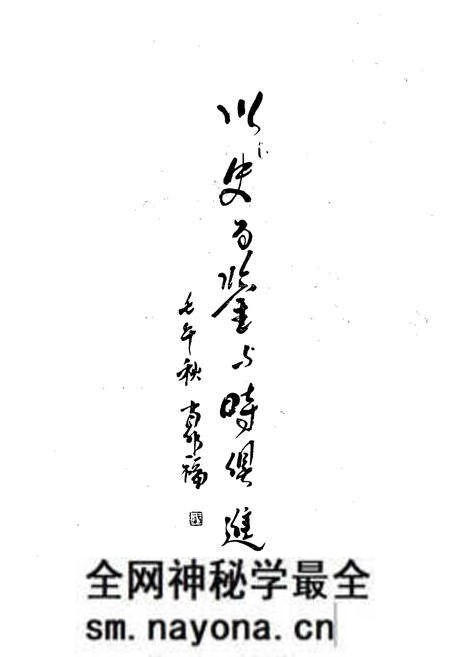 以史为鉴与時俱進
壬午秋
全网神秘学最全
sm.nayona.cn